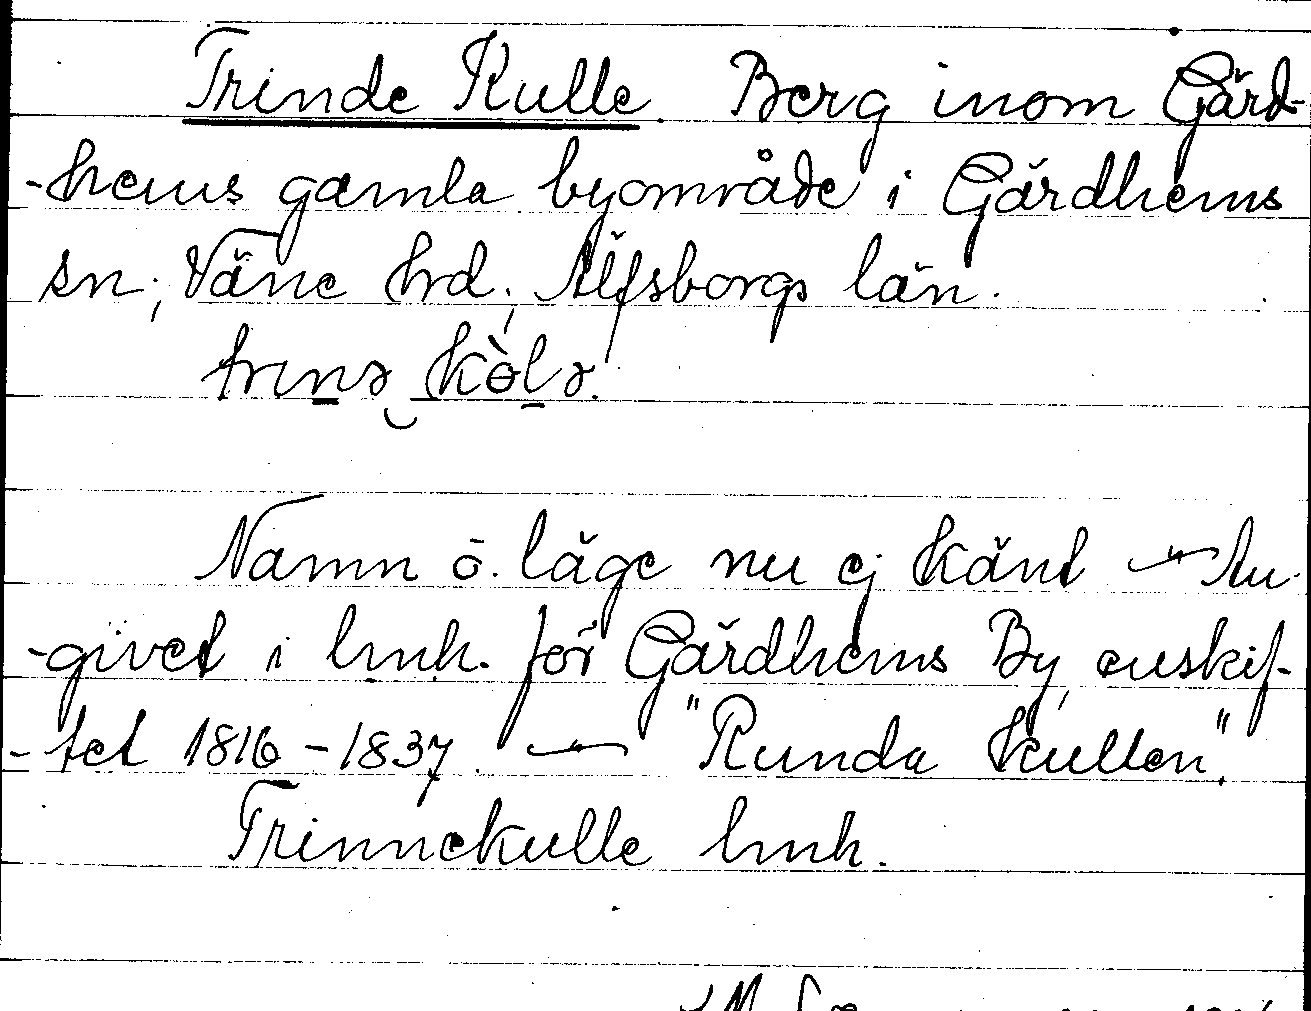 Trinde Kulle. Berg inom Gärd-
-hems gamla byområde i Gärdhems
sn, Väne hrd, Älfsborgs län.
trɩnə kòlə.
Namn o. läge nu ej känt — An-
-givet i lmh. för Gärdhems By, enskif-
-tet 1816-1837. — "Runda kullen".
Trinnekulle lmh.